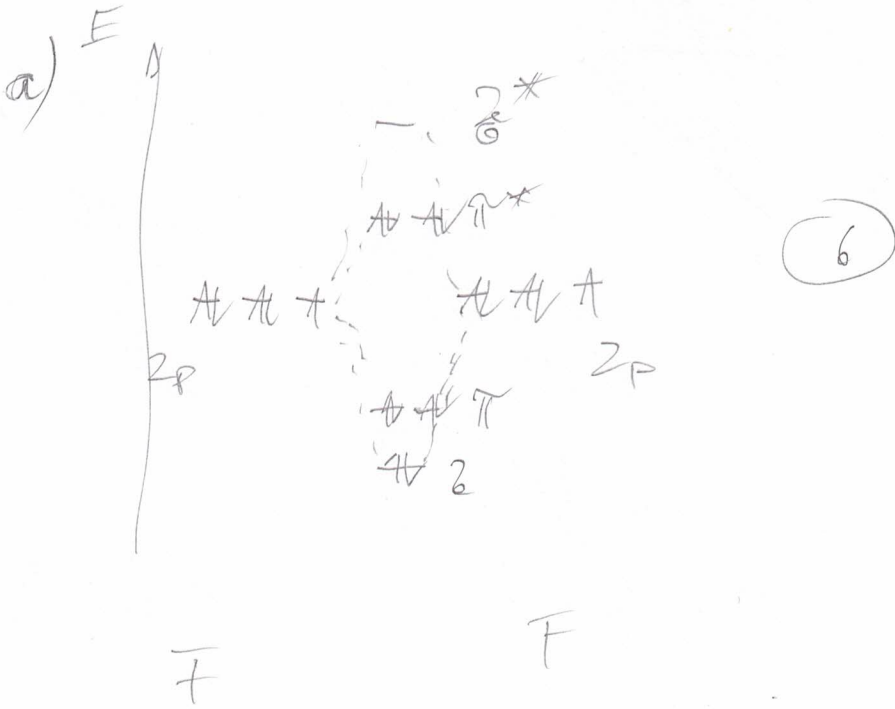 E
a)
σ*
π*
6
2p
2p
π
σ
F
F